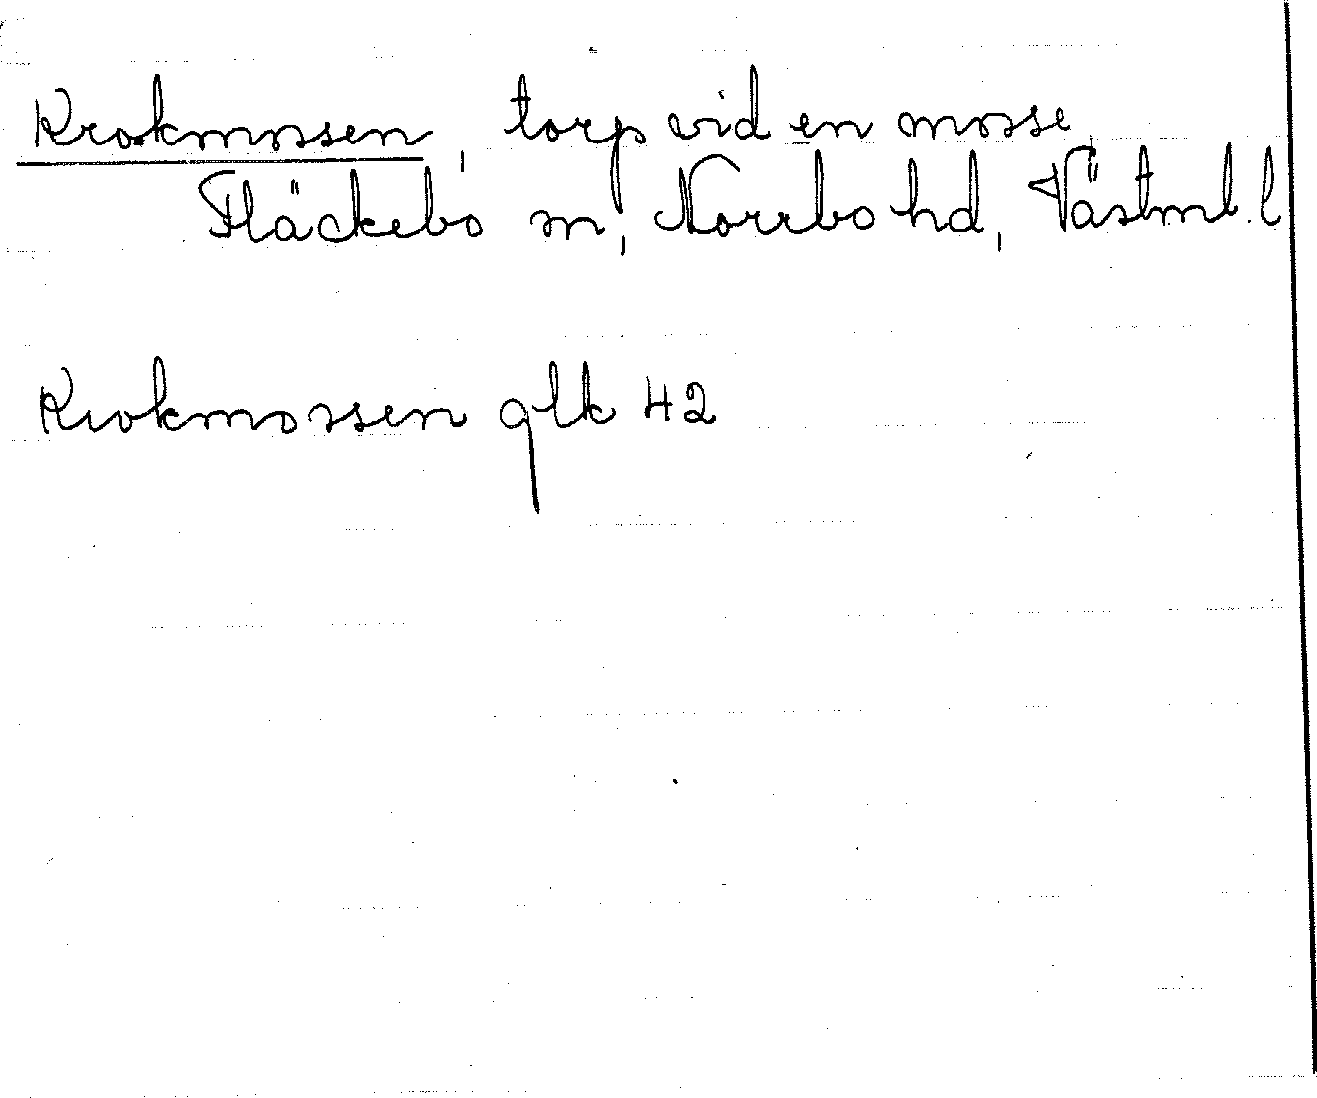 Krokmossen, torp vid en mosse,
Fläckebo sn, Norrbo hd, Västml. l
Krokmossen glk 42